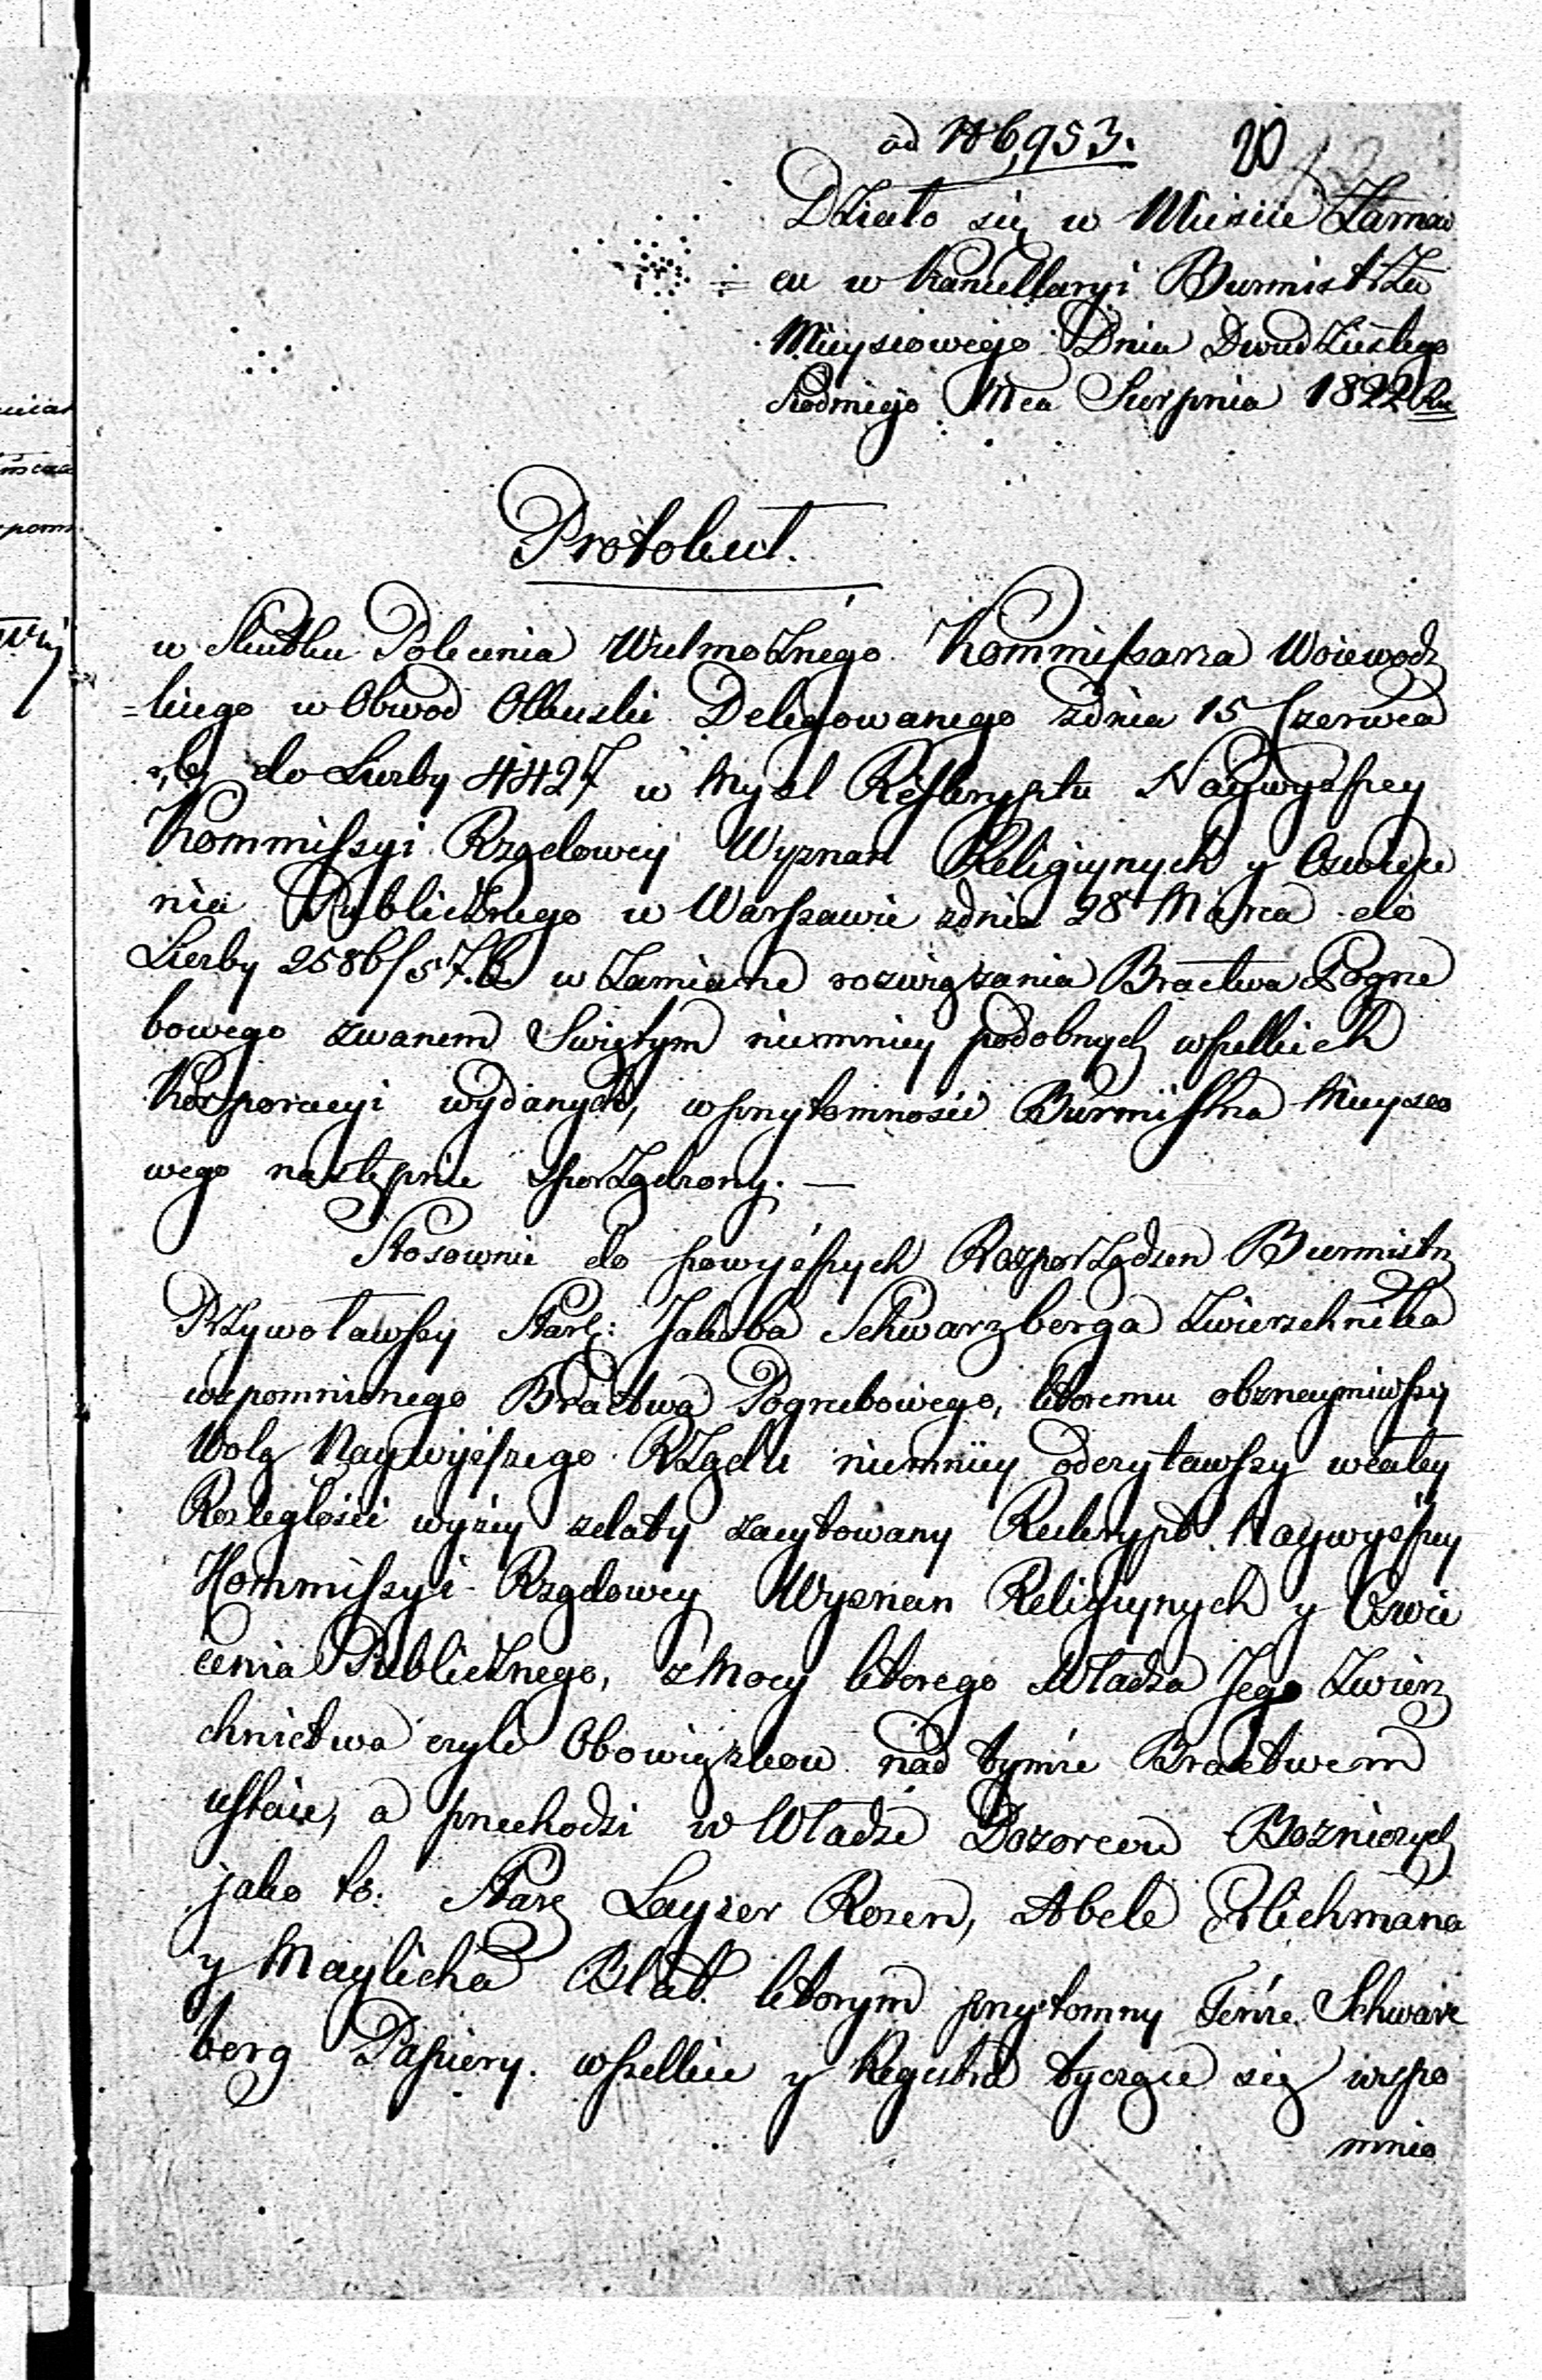 ad N 6,953. 20
Działo się w Mieście Żarnow
=cu w Kancellaryi Burmistrza
Mieyscowego Dnia Dwudziestego
Siodmego Mca Sierpnia 1822 Ru
Protokuł.
w Skutku Polecenia Wielmożnego Kommissarza Woiewodz
=kiego w Obwod Olkuski Delegowanego zdnia 15 Czerwca
r, b, do Liczby 4427 w Mysl Reskryptu Naywyższey
Kommissyi Rządowey Wyznań Religiynych y Oswiece
nia Publicznego w Warszawie zdnia 28 Marca do
Liczby 2586/57. w Zamiane rozwiązania Bractwa Pogrze
bowego zwanem Swiętym niemniey podobnych wszelkich
Korporacyi wydanych, w przytomności Burmistrza Mieysco
wego następnie sporządzony. —
Stosownie do powyższych Rozporządzen Burmistrz
Przywoławszy Starz: Jakóba Schwarzberga Zwierzchnika
wspomnionego Bractwa Pogrzebowego, ktoremu obznaymiwszy
Wolą Naywyższego Rządu niemniey odczytawszy wcałey
Rozległości wyżey zdaty zacytowany Reskrypt Naywyższey
Kommissyi Rządowey Wyznan Religiynych y Oswie
cenia Publicznego, z Mocy ktorego Władza Jego Zwierz
chnictwa czyli Obowiązkow nad tymże Bractwem
ustaie, a przechodzi w Władze Dozorcow Bozniczych
jako to: Starz Layzer Rozen, Abele Erlichmana
y Maylicha Blat. ktorym przytomny Tenże Schwarz
berg Papiery wszelkie y Regestra tyczące się wspo
mnio